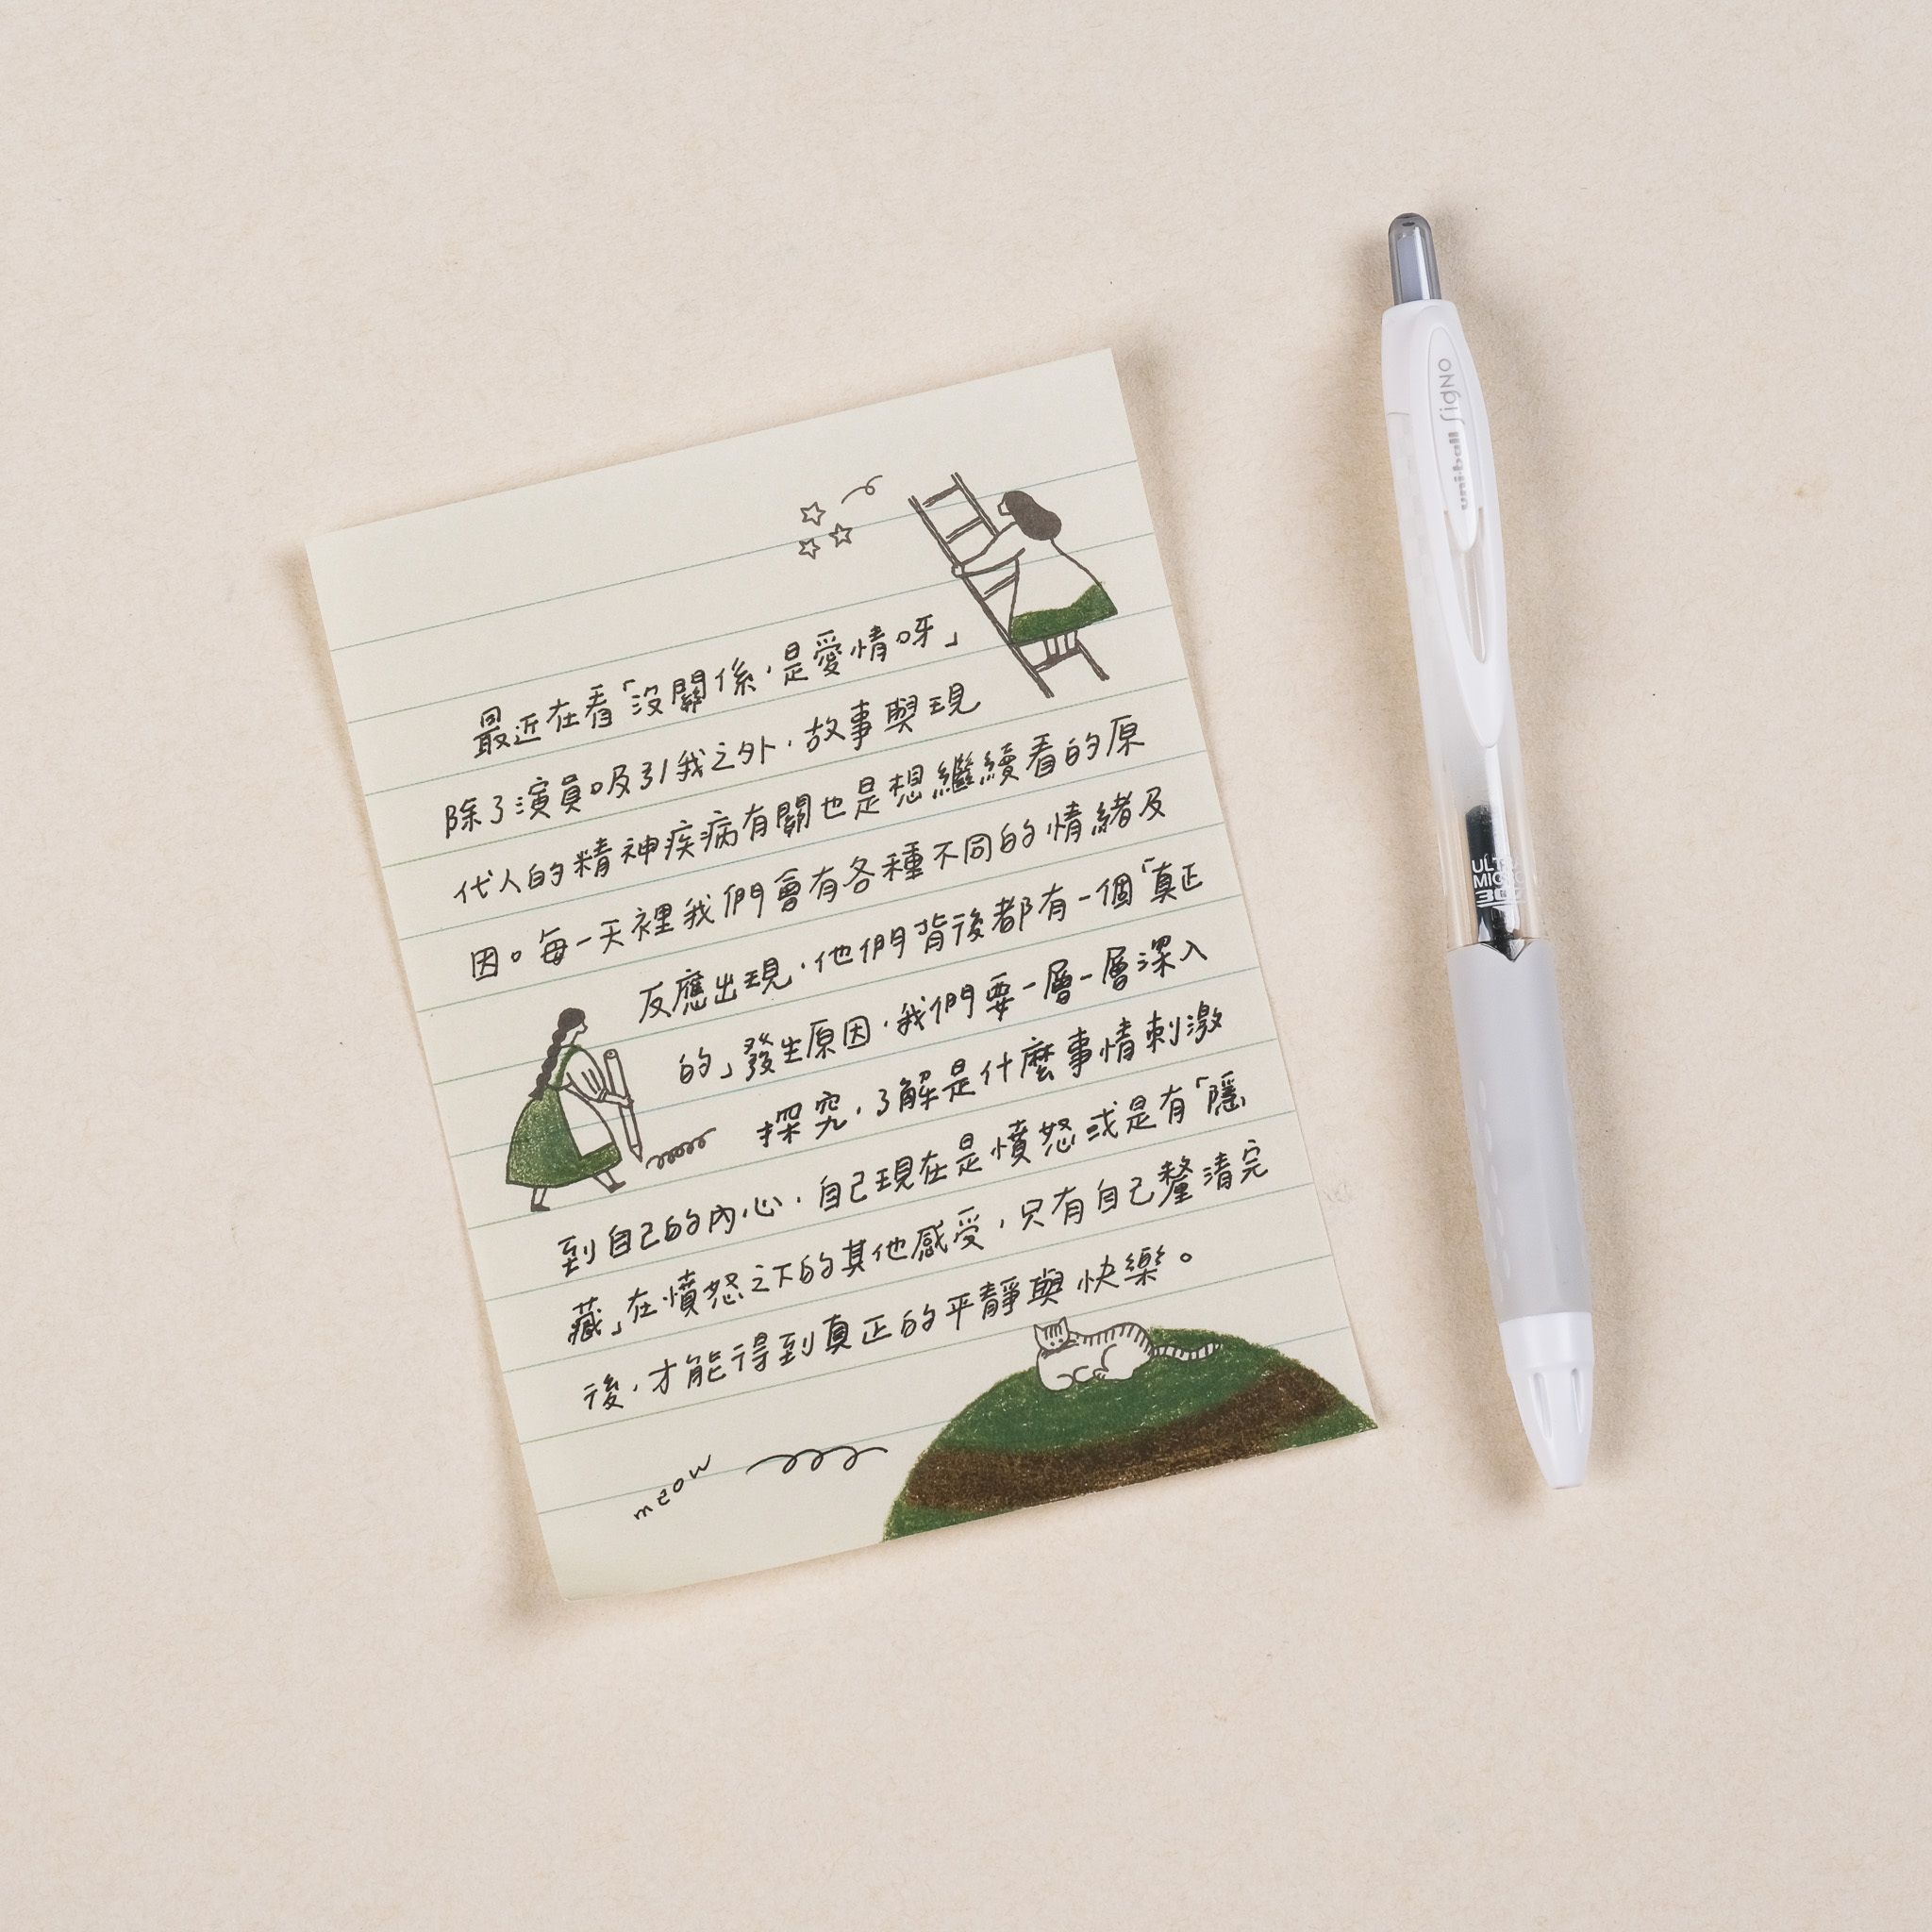 最近在看「沒關係，是愛情呀」
除了演員吸引我之外，故事與現
代人的精神疾病有關也是想繼續看的原
因。每一天裡我們會有各種不同的情緒及
反應出現，他們背後都有一個「真正
的」發生原因，我們要一層一層深入
探究，了解是什麼事情刺激
到自己的內心，自己現在是憤怒或是有「隱
藏」在憤怒之下的其他感受，只有自己釐清完
後，才能得到真正的平靜與快樂。
meow
uni-ball SigNO
ULTRA
MICRO